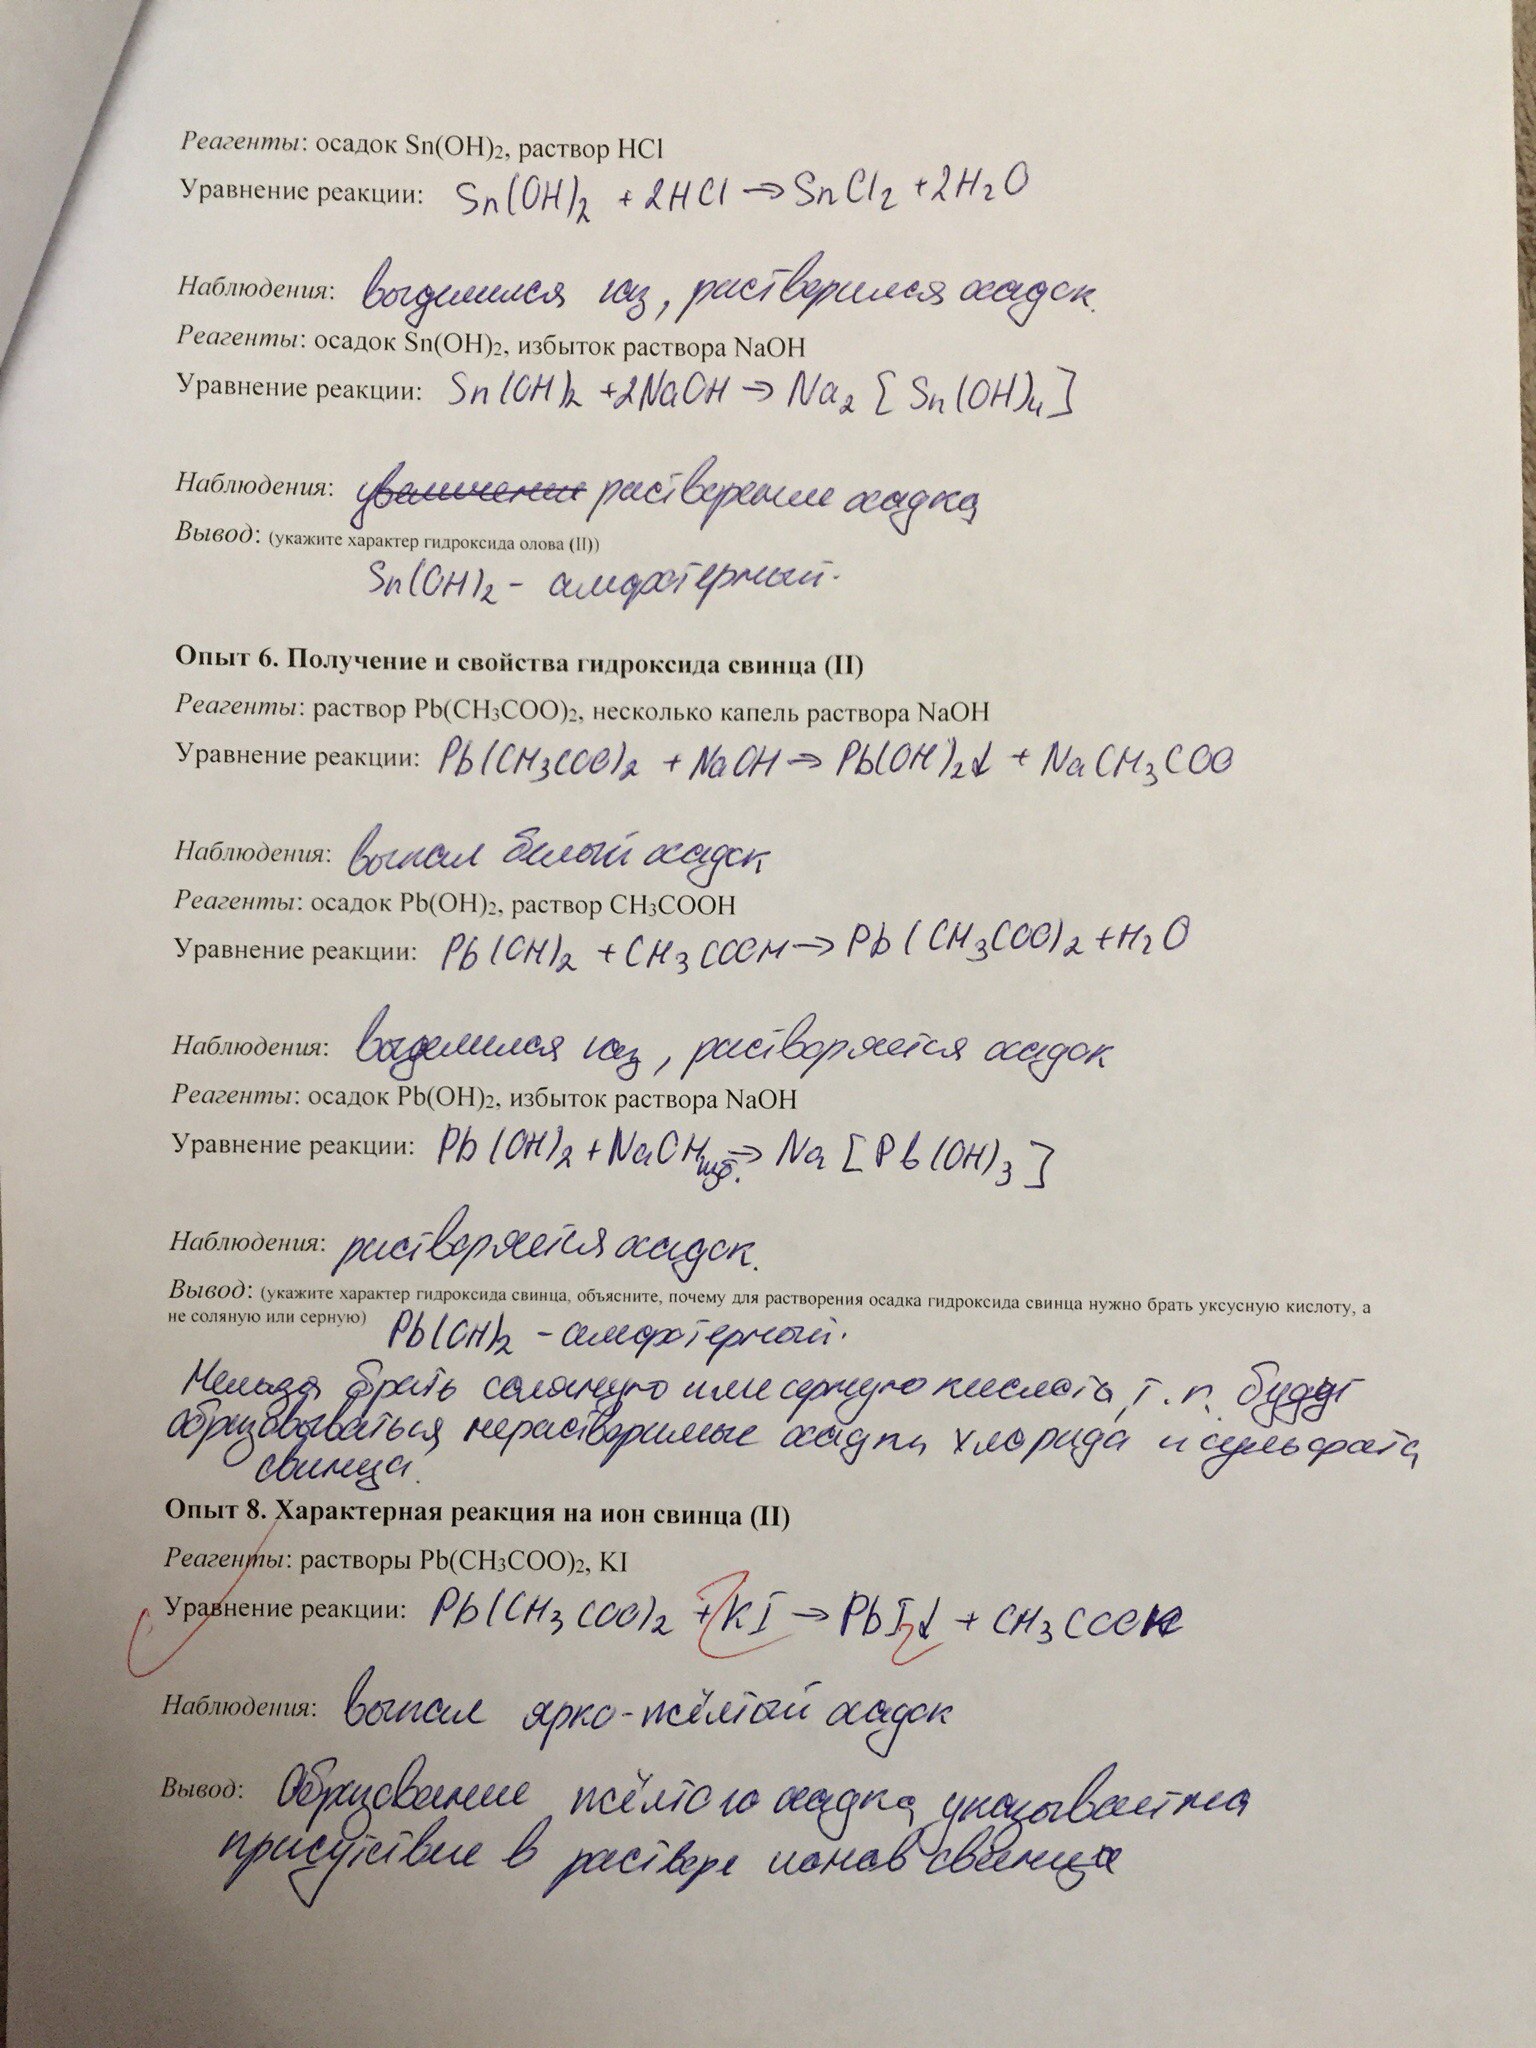 Реагенты: осадок Sn(OH)₂, раствор HCl
Уравнение реакции: Sn(OH)₂ + 2HCl → SnCl₂ + 2H₂O
Наблюдения: выделился газ, растворился осадок.
Реагенты: осадок Sn(OH)₂, избыток раствора NaOH
Уравнение реакции: Sn(OH)₂ + 2NaOH → Na₂[Sn(OH)₄]
Наблюдения: увеличение растворение осадка
Вывод: (укажите характер гидроксида олова (II))
Sn(OH)₂ – амфотерный.
Опыт 6. Получение и свойства гидроксида свинца (II)
Реагенты: раствор Pb(CH₃COO)₂, несколько капель раствора NaOH
Уравнение реакции: Pb(CH₃COO)₂ + NaOH → Pb(OH)₂↓ + NaCH₃COO
Наблюдения: выпал белый осадок
Реагенты: осадок Pb(OH)₂, раствор CH₃COOH
Уравнение реакции: Pb(OH)₂ + CH₃COOH → Pb(CH₃COO)₂ + H₂O
Наблюдения: выделился газ, растворяется осадок
Реагенты: осадок Pb(OH)₂, избыток раствора NaOH
Уравнение реакции: Pb(OH)₂ + NaOH изб. → Na[Pb(OH)₃]
Наблюдения: растворяется осадок.
Вывод: (укажите характер гидроксида свинца, объясните, почему для растворения осадка гидроксида свинца нужно брать уксусную кислоту, а
не соляную или серную) Pb(OH)₂ – амфотерный.
Нельзя брать соляную или серную кислота, т.к. будут
образовываться нерастворимые осадки хлорида и сульфата
свинца.
Опыт 8. Характерная реакция на ион свинца (II)
Реагенты: растворы Pb(CH₃COO)₂, KI
Уравнение реакции: Pb(CH₃COO)₂ + 2KI → PbI₂↓ + CH₃COOK
Наблюдения: выпал ярко-жёлтый осадок
Вывод: Образование жёлтого осадка указывает на
присутствие в растворе ионов свинца